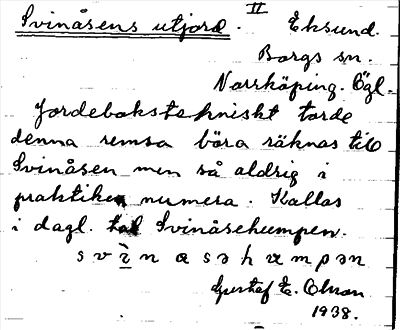 Svinåsens utjord. II Eksund.
Borgs sn.
Norrköping. Ögl.
Jordebokstekniskt torde
denna remsa böra räknas till
Svinåsen men så aldrig i
praktiken numera. Kallas
i dagl. tal Svinåsekumpen.
Gustaf E. Olson
1938.